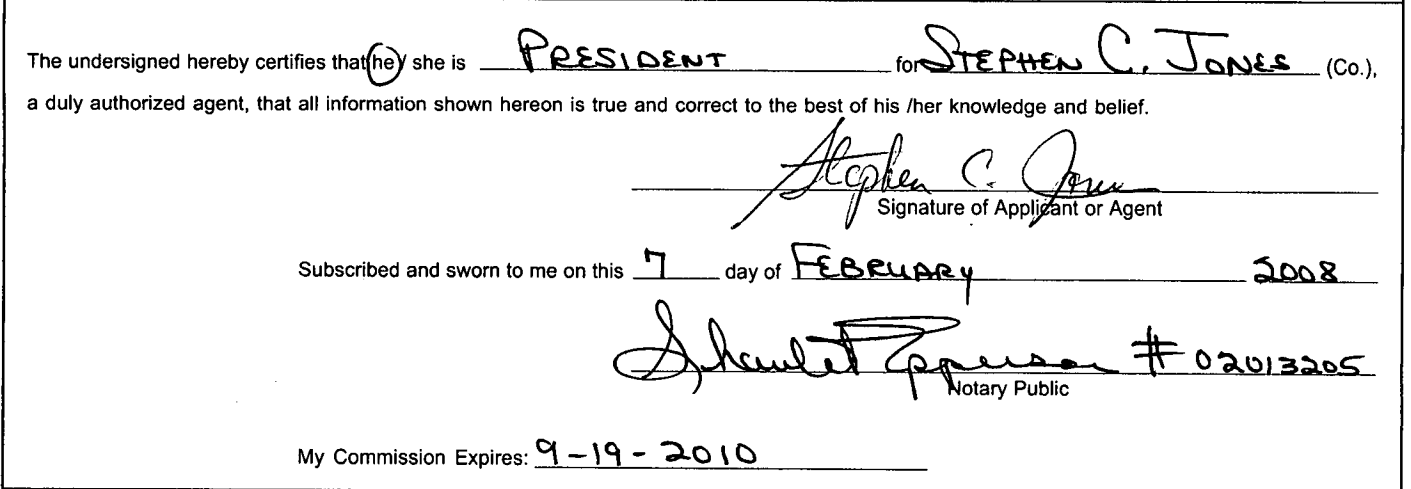 The undersigned hereby certifies that he / she is PRESIDENT for STEPHEN C. JONES (Co.),
a duly authorized agent, that all information shown hereon is true and correct to the best of his /her knowledge and belief.
Stephen C. Jones
Signature of Applicant or Agent
Subscribed and sworn to me on this 7 day of FEBRUARY 2008
Epperson # 02013205
Notary Public
My Commission Expires: 9-19-2010